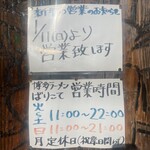 新年の営業のお知らせ
1/11(日)より
営業致します
博多ラーメン
ばりこて 営業時間
火〜土 11:00〜22:00
日 11:00〜21:00
月 定休日(祝祭日問わず)